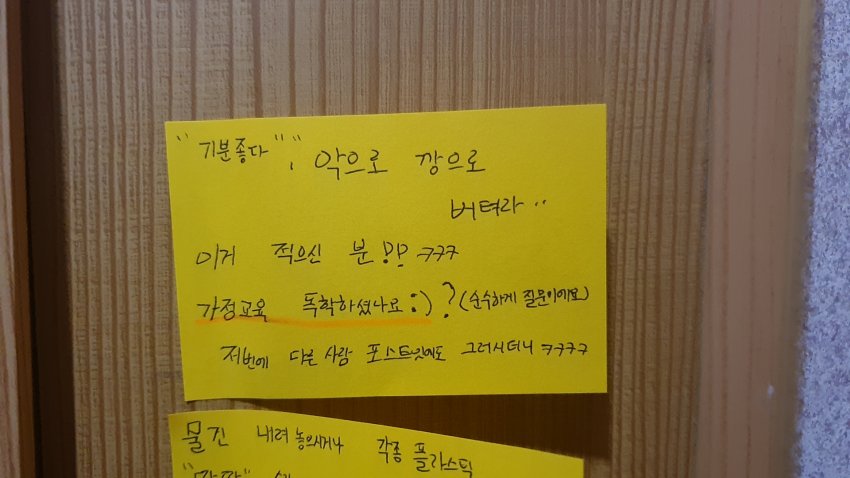 "기분좋다", "악으로 깡으로
버텨라..
이거 적으신 분!? ㅋㅋㅋ
가정교육 독학하셨나요 :) ? (순수하게 질문이에요)
저번에 다른 사람 포스트잇에도 그러시더니 ㅋㅋㅋㅋ
물건 내려 놓으시거나 각종 플라스틱